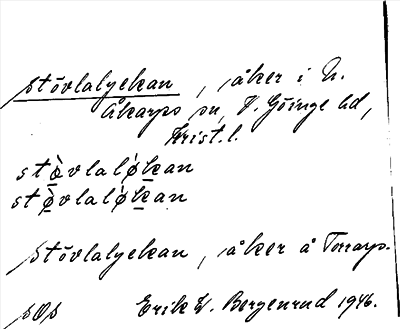 stövlalyckan, åker i N.
Åkarps sn, V. Göinge hd,
Krist. l.
stövlaløkan
stövlaløkan
stövlalyckan, åker å Torarp.
sOs Erik W. Bergenrud 1946.